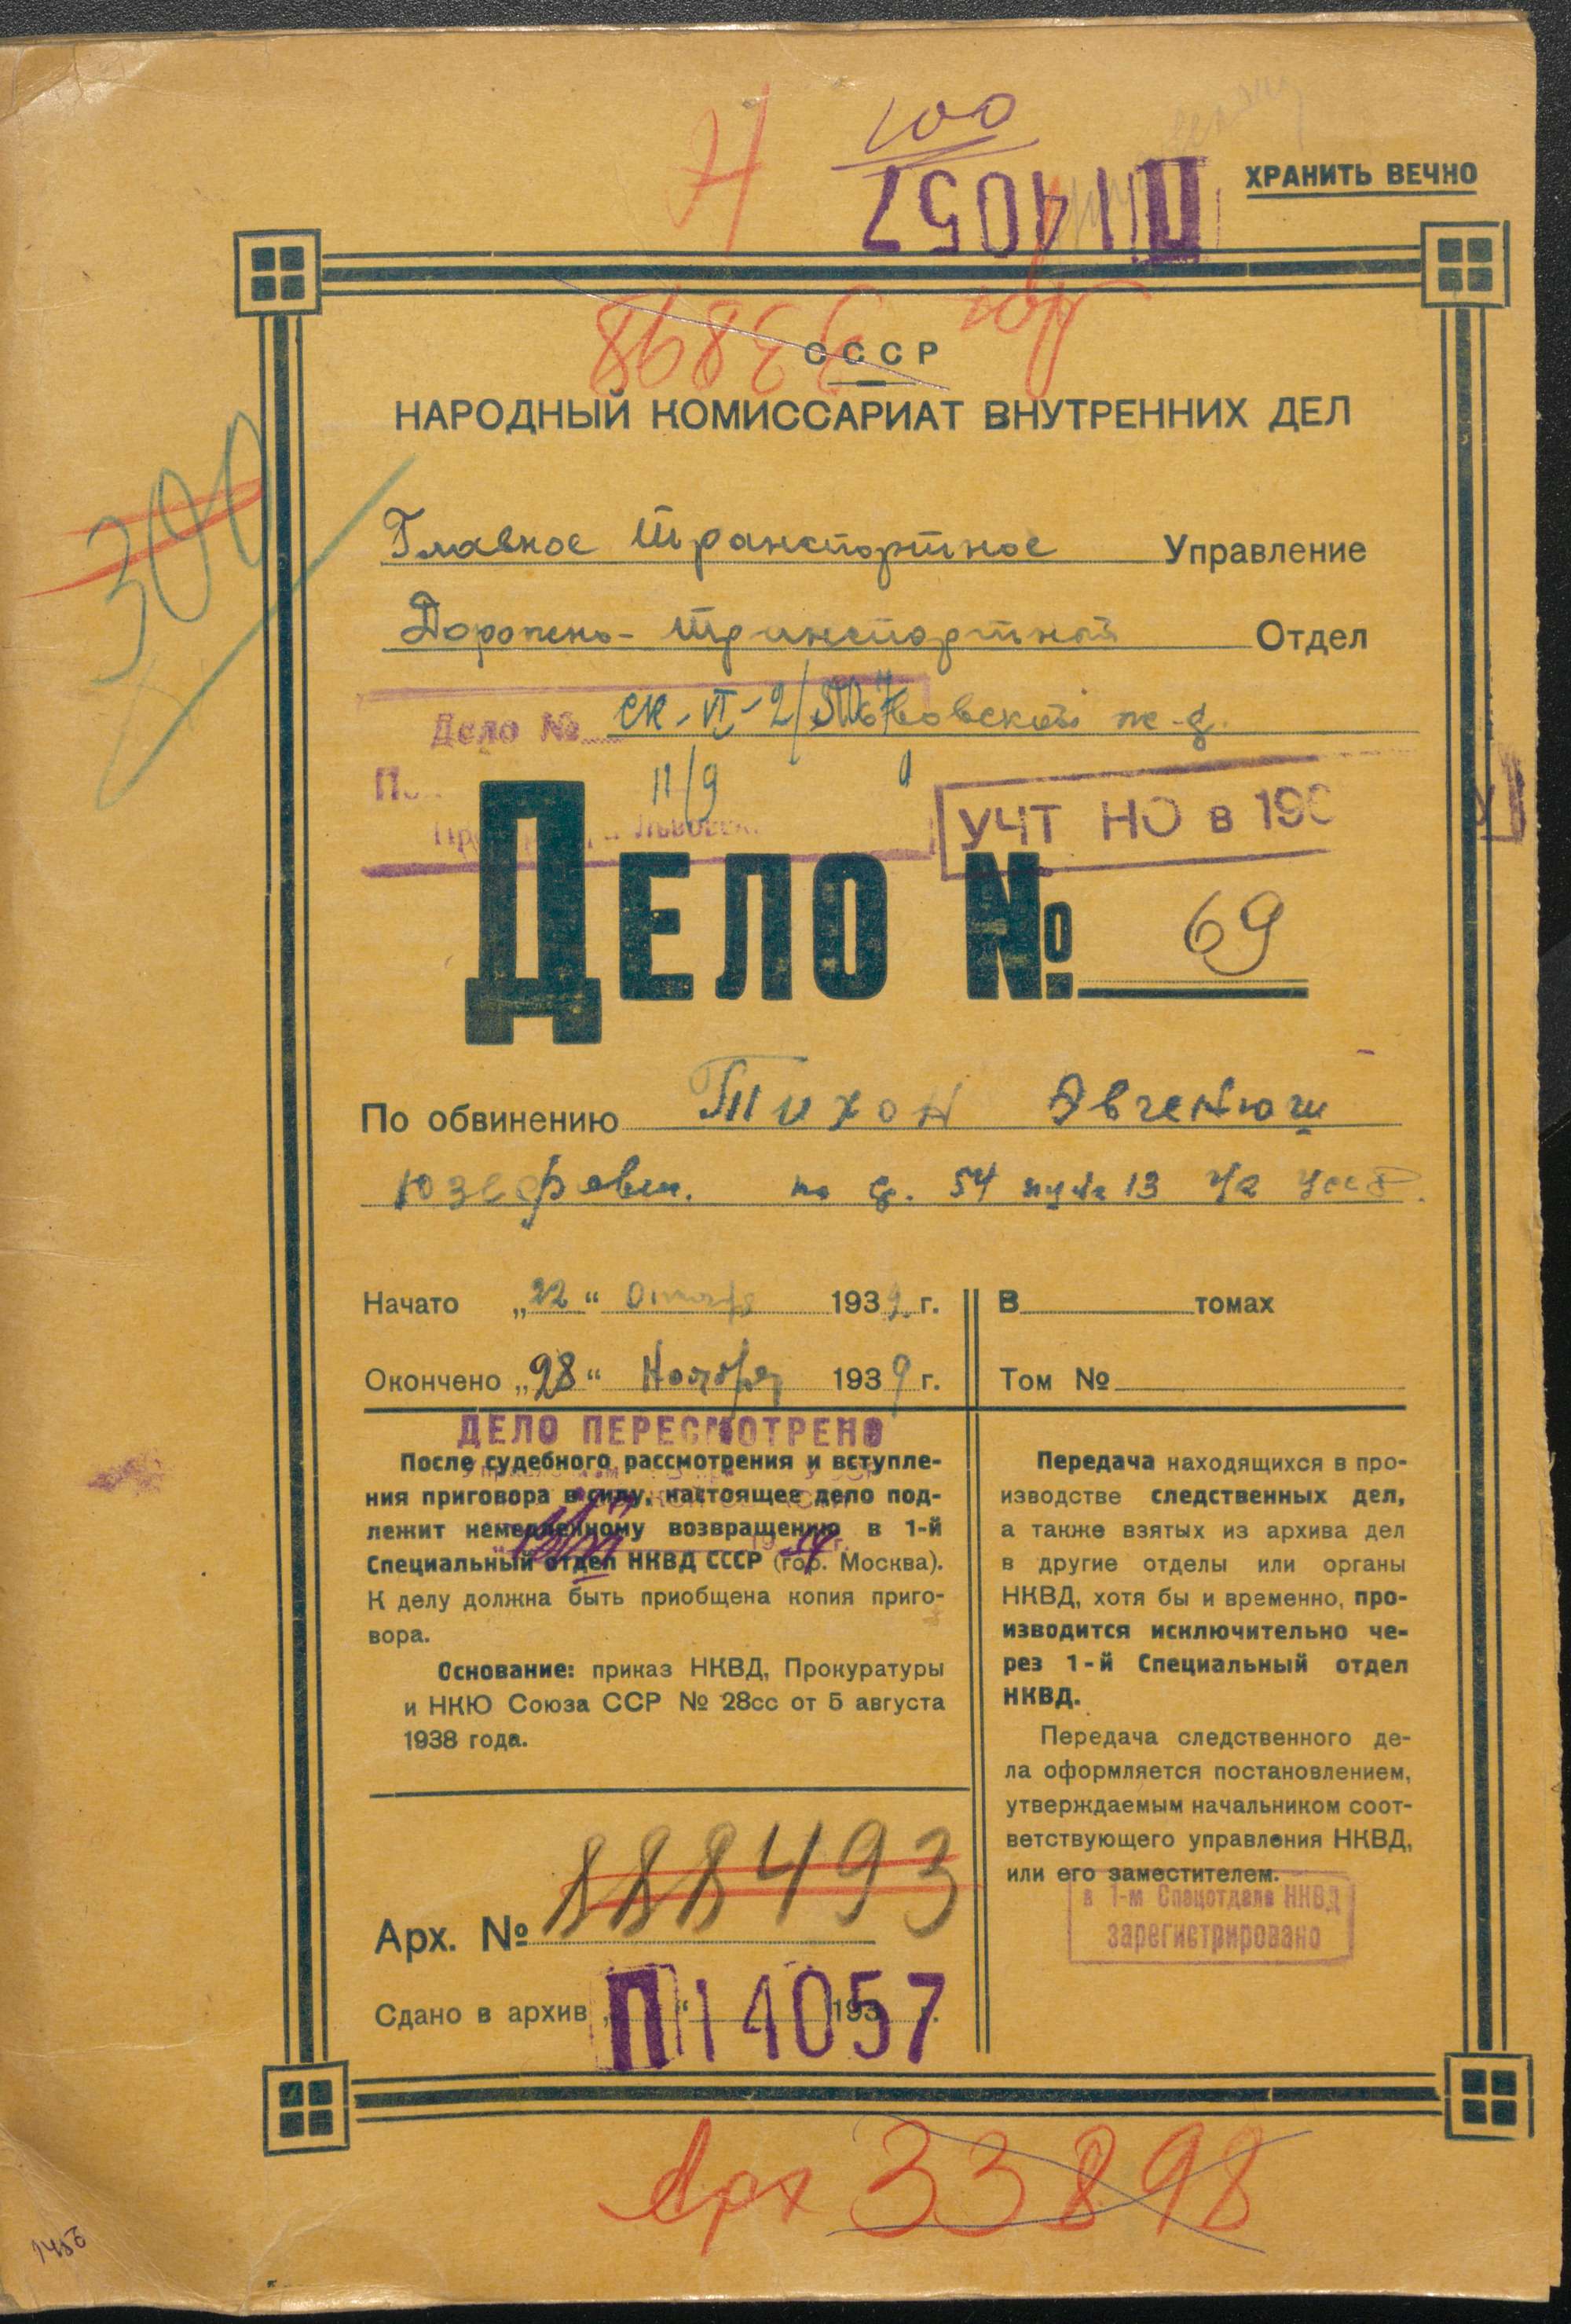 100
П14057
ХРАНИТЬ ВЕЧНО
Арх 33898
СССР
НАРОДНЫЙ КОМИССАРИАТ ВНУТРЕННИХ ДЕЛ
300
Главное Транспортное Управление
Дорожно-Транспортный Отдел
Львовской ж.д.
Дело №
11/9
УЧТ НО в 19
ДЕЛО № 69
По обвинению Тихон Эвгениюш
Юзефович. по ст. 54 пункт 13 УК УССР.
Начато „22“ Октября 1939 г.
В томах
Окончено „28“ Ноября 1939 г.
Том №
ДЕЛО ПЕРЕСМОТРЕНО
После судебного рассмотрения и вступле-
ния приговора в силу, настоящее дело под-
лежит немедленному возвращению в 1-й
Специальный отдел НКВД СССР (гор. Москва).
К делу должна быть приобщена копия приго-
вора.
Основание: приказ НКВД, Прокуратуры
и НКЮ Союза ССР № 28сс от 5 августа
1938 года.
Передача находящихся в про-
изводстве следственных дел,
а также взятых из архива дел
в другие отделы или органы
НКВД, хотя бы и временно, про-
изводится исключительно че-
рез 1-й Специальный отдел
НКВД.
Передача следственного де-
ла оформляется постановлением,
утверждаемым начальником соот-
ветствующего управления НКВД,
или его заместителем.
в 1-м Спецотделе НКВД
зарегистрировано
Арх. № 888493
Сдано в архив „ “ 193 г.
П14057
Арх 33898
1456